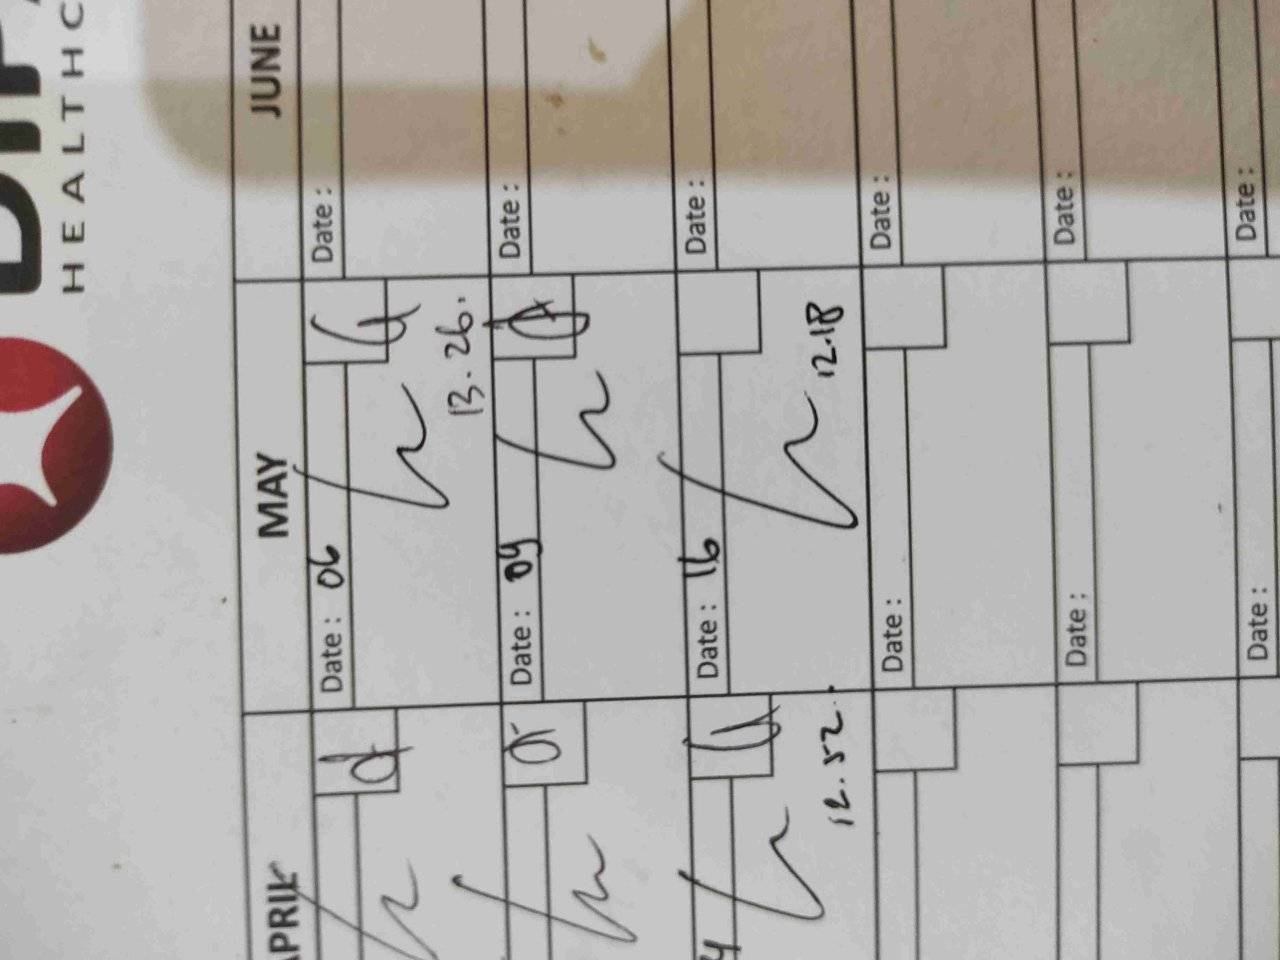 HEALTHC
APRIL
MAY
JUNE
Date : 06
Date :
13.26.
Date : 09
Date :
Date : 16
Date :
12.52.
12.18
Date :
Date :
Date :
Date :
Date :
Date :